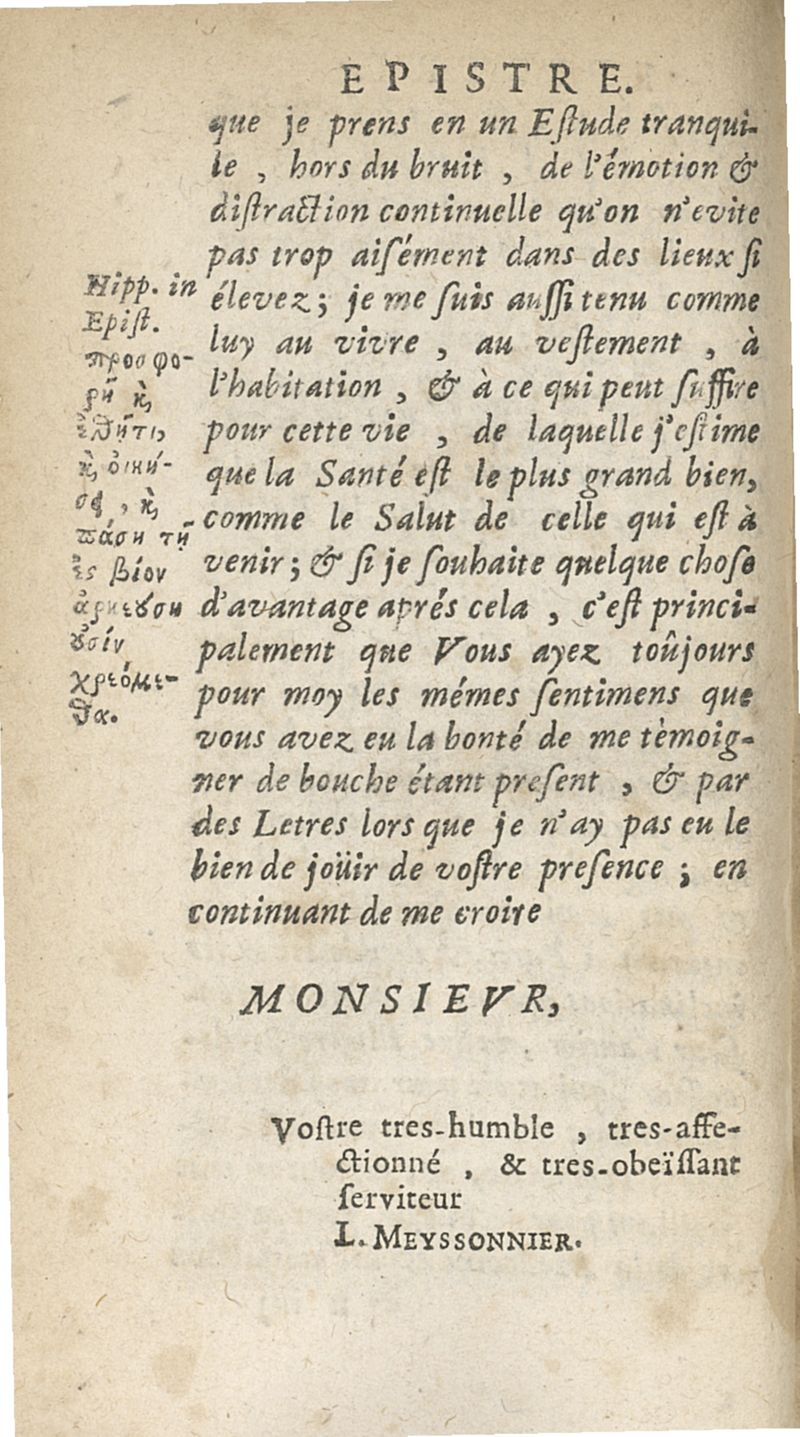 EPISTRE.
que je prens en un Eſtude tranqui-
le , hors du bruit , de l'émotion &
diſtraction continuelle qu'on n'evite
pas trop aiſément dans des lieux ſi
élevez ; je me ſuis auſſi tenu comme
luy au vivre , au veſtement , à
l'habitation , & à ce qui peut ſuffire
pour cette vie , de laquelle j'eſtime
que la Santé eſt le plus grand bien,
comme le Salut de celle qui eſt à
venir ; & ſi je ſouhaite quelque choſe
d'avantage aprés cela , c'eſt princi-
palement que Vous ayez toûjours
pour moy les mémes ſentimens que
vous avez eu la bonté de me tèmoig-
ner de bouche étant preſent , & par
des Letres lors que je n'ay pas eu le
bien de joüir de voſtre preſence ; en
continuant de me croire
Hipp. in
Epiſt.
προσφο-
ρῇ κ̀,
ἐθῆτι,
κ̀, οἰκή-
σϥ , κ̀,
πάσῃ τῇ
ἐς βίον
ἀρκεούσῃ
οὐσίῃ
χρεόμε-
θα.
MONSIEVR,
Voſtre tres-humble , tres-affe-
ctionné , & tres-obeïſſant
ſerviteur
L. MEYSSONNIER.